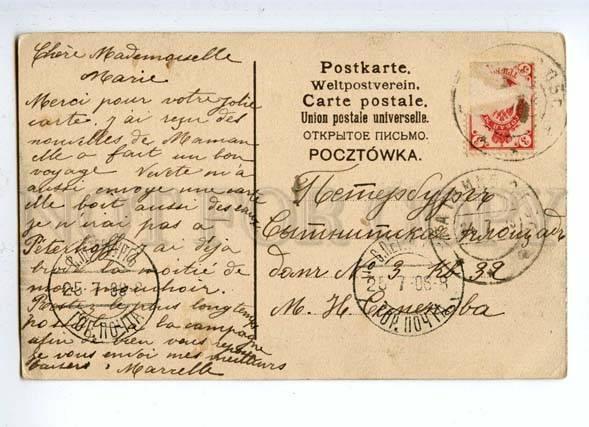 Chère Mademoiselle
Marie
Merci pour votre jolie
carte. J'ai reçu des
nouvelles de Maman
elle a fait un bon
voyage
aussi envoye une carte
elle boit aussi des eaux
je n'irai pas à
Peterhoff j'ai déja
la moitié de
mon mouchoir.
plus longtemps
la campagne
afin de bien vous
je vous envoi mes meilleurs
baisers. Marcelle
Postkarte.
Weltpostverein.
Carte postale.
Union postale universelle.
ОТКРЫТОЕ ПИСЬМО.
POCZTÓWKA.
Петербургъ
Сытнинская площадь
домъ № 3 кв 32
М. Н. Семенова
25·7·08
ГОР. ПОЧТА
25·7·08·8
ГОР. ПОЧТА
NOT FOR COPY